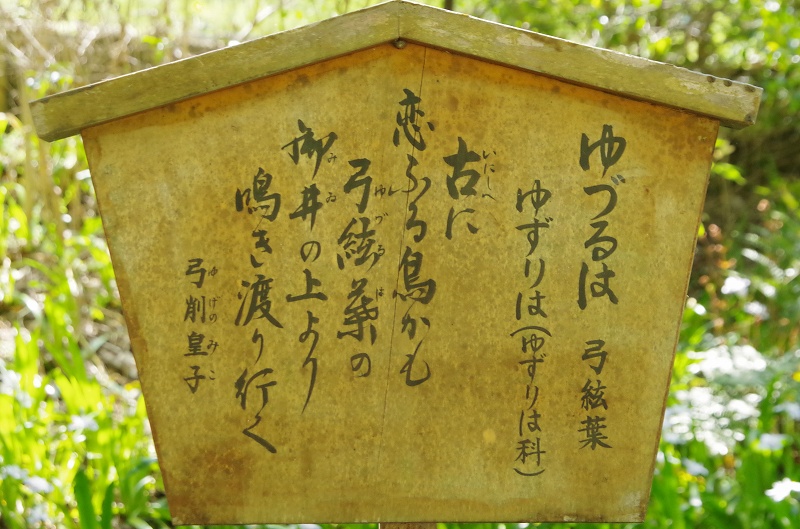 ゆづるは 弓絃葉
ゆずりは(ゆずりは科)
古に
いにしへ
恋ふる鳥かも
弓絃葉の
ゆづるは
御井の上より
みゐ
鳴き渡り行く
弓削皇子
ゆげのみこ